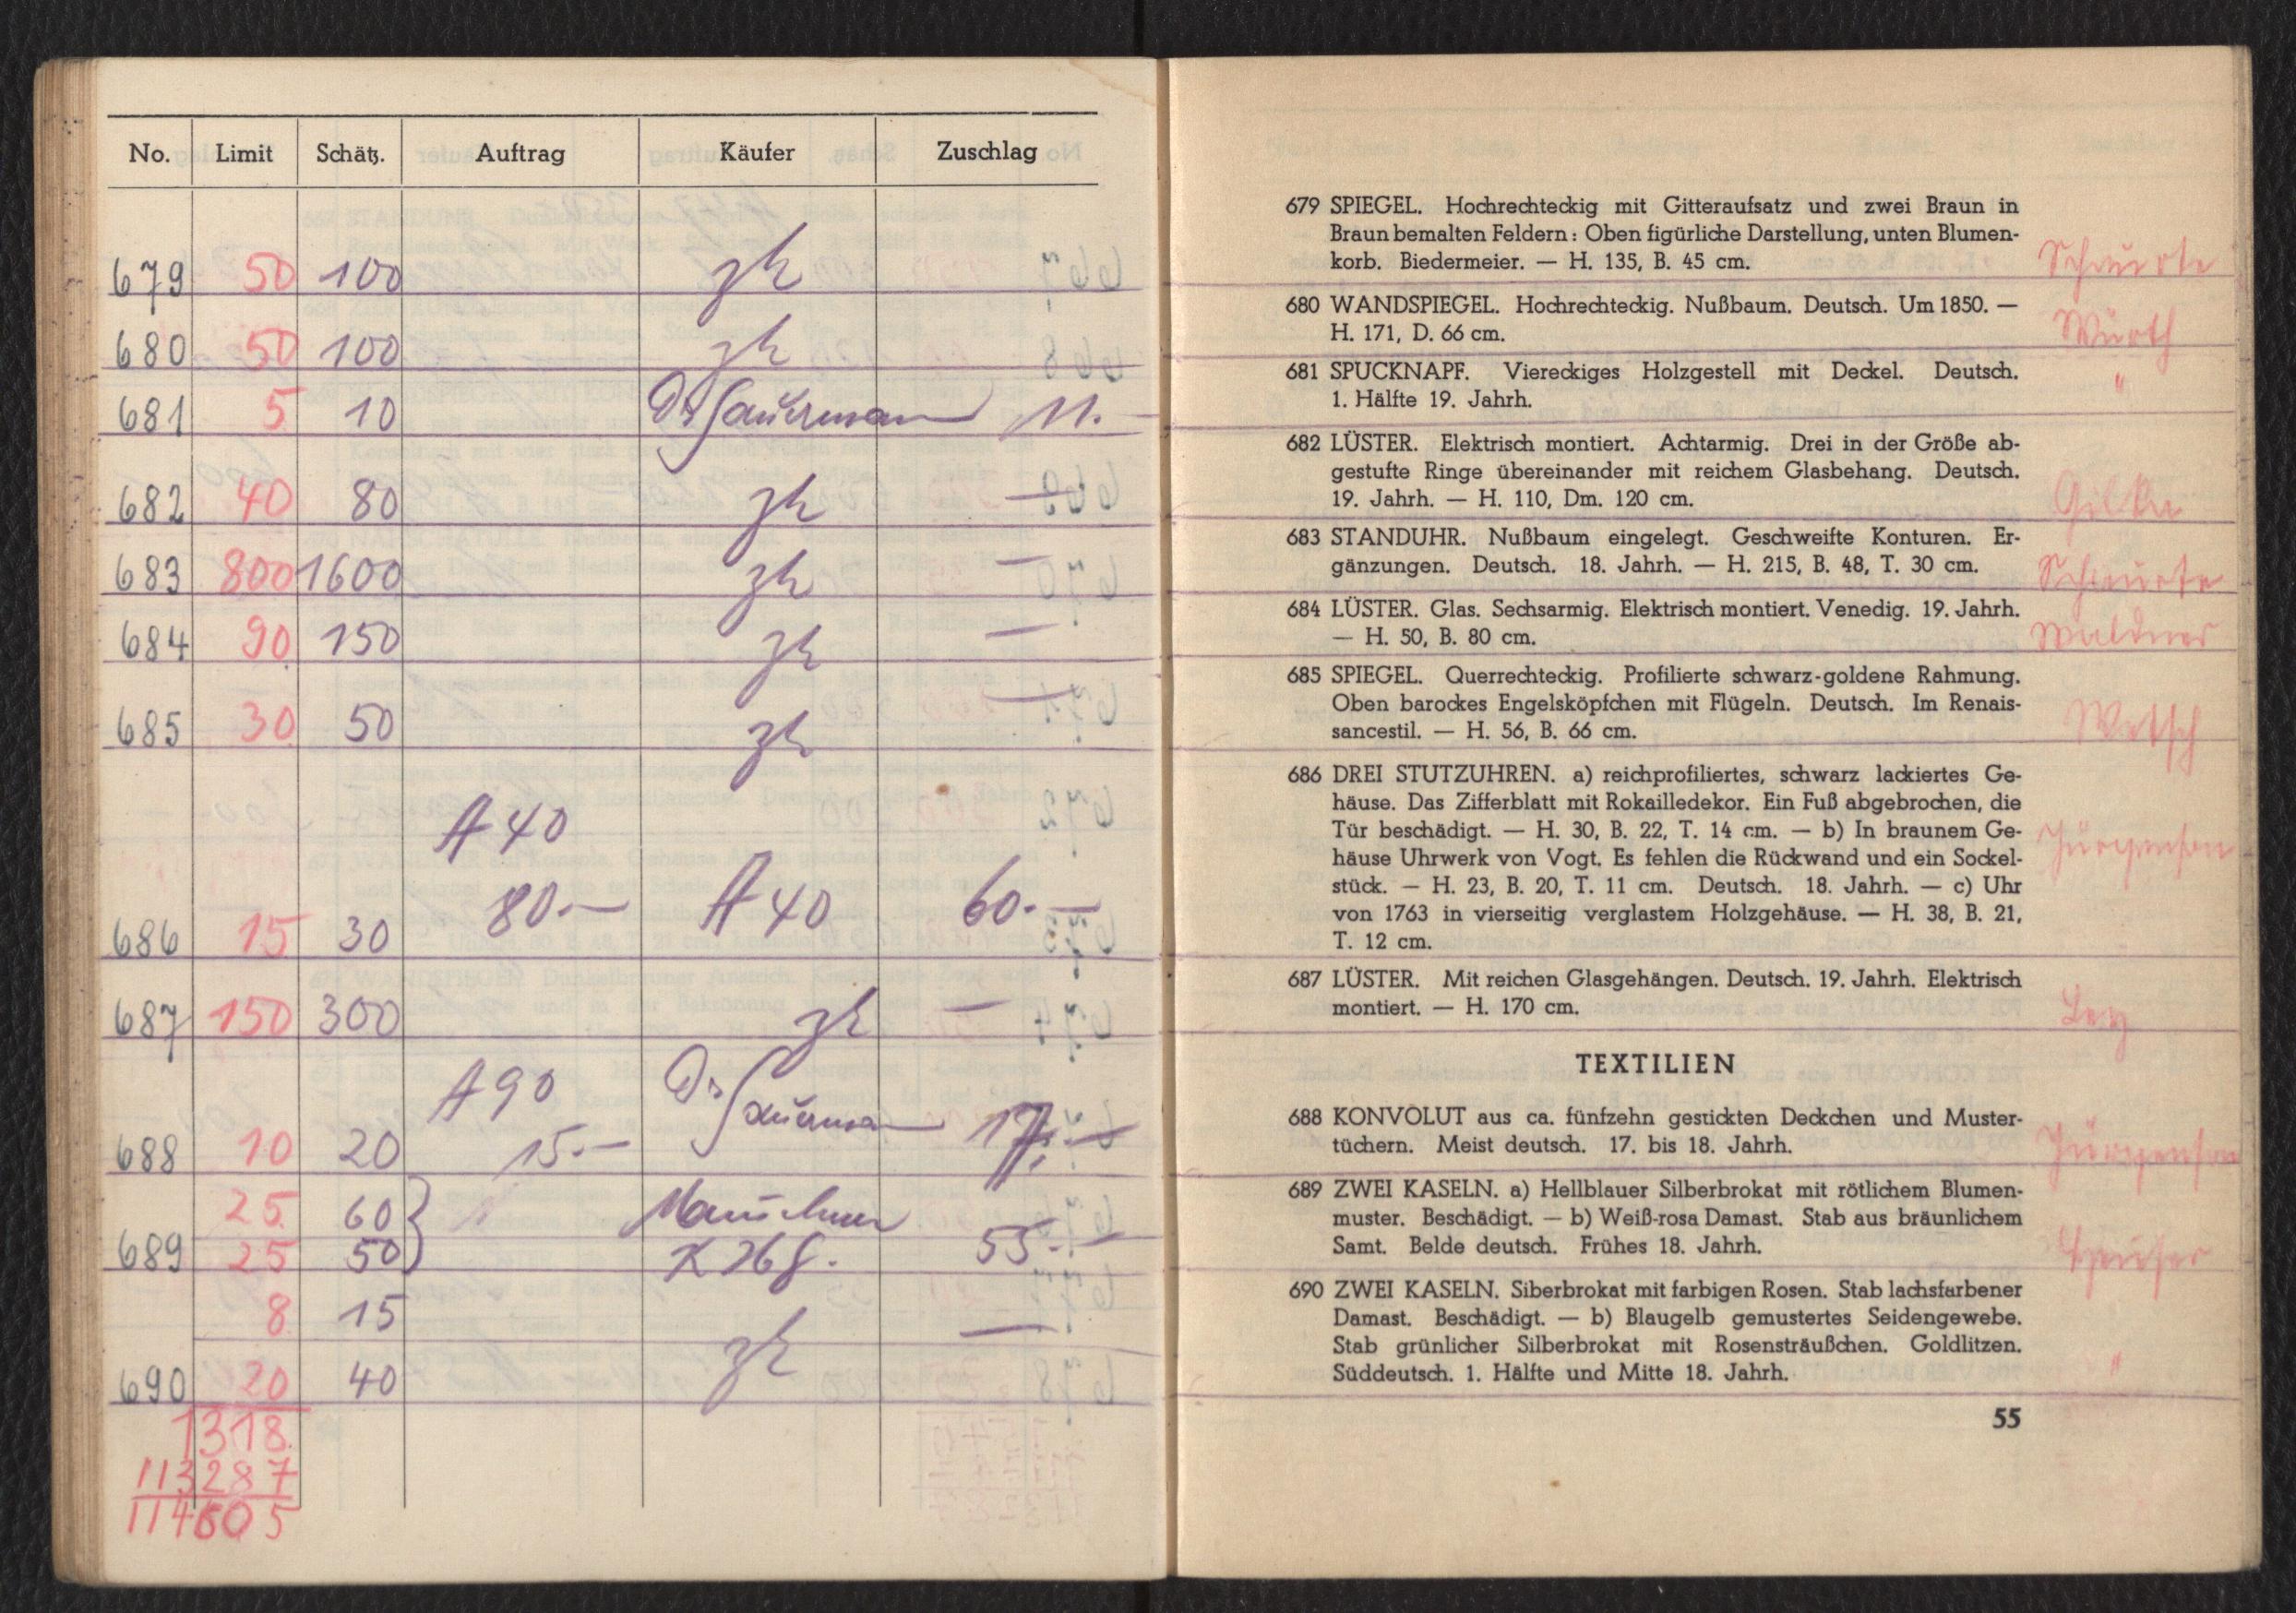 No. Limit Schätz. Auftrag Käufer Zuschlag
679 50 100 zk
680 50 100 zk
681 5 10 Dr Sauermann 11.–
682 40 80 zk —
683 800 1600 zk —
684 90 150 zk —
685 30 50 zk —
A 40
686 15 30 80.– A 40 60.–
687 150 300 zk —
A 90 Dr
688 10 20 15.– Sauermann 17.–
25 60
689 25 50 55.–
8 15
690 20 40 zk —
1318
113287
114605
679 SPIEGEL. Hochrechteckig mit Gitteraufsatz und zwei Braun in
Braun bemalten Feldern: Oben figürliche Darstellung, unten Blumen-
korb. Biedermeier. — H. 135, B. 45 cm.
680 WANDSPIEGEL. Hochrechteckig. Nußbaum. Deutsch. Um 1850. —
H. 171, D. 66 cm.
Würth
681 SPUCKNAPF. Viereckiges Holzgestell mit Deckel. Deutsch. "
1. Hälfte 19. Jahrh.
682 LÜSTER. Elektrisch montiert. Achtarmig. Drei in der Größe ab-
gestufte Ringe übereinander mit reichem Glasbehang. Deutsch.
19. Jahrh. — H. 110, Dm. 120 cm.
Gilka
683 STANDUHR. Nußbaum eingelegt. Geschweifte Konturen. Er-
gänzungen. Deutsch. 18. Jahrh. — H. 215, B. 48, T. 30 cm.
684 LÜSTER. Glas. Sechsarmig. Elektrisch montiert. Venedig. 19. Jahrh.
— H. 50, B. 80 cm. Waldner
685 SPIEGEL. Querrechteckig. Profilierte schwarz-goldene Rahmung.
Oben barockes Engelsköpfchen mit Flügeln. Deutsch. Im Renais-
sancestil. — H. 56, B. 66 cm. Wetsch
686 DREI STUTZUHREN. a) reichprofiliertes, schwarz lackiertes Ge-
häuse. Das Zifferblatt mit Rokailledekor. Ein Fuß abgebrochen, die
Tür beschädigt. — H. 30, B. 22, T. 14 cm. — b) In braunem Ge- Jürgenson
häuse Uhrwerk von Vogt. Es fehlen die Rückwand und ein Sockel-
stück. — H. 23, B. 20, T. 11 cm. Deutsch. 18. Jahrh. — c) Uhr
von 1763 in vierseitig verglastem Holzgehäuse. — H. 38, B. 21,
T. 12 cm.
687 LÜSTER. Mit reichen Glasgehängen. Deutsch. 19. Jahrh. Elektrisch
montiert. — H. 170 cm. Ley
TEXTILIEN
688 KONVOLUT aus ca. fünfzehn gestickten Deckchen und Muster-
tüchern. Meist deutsch. 17. bis 18. Jahrh. Jürgenson
689 ZWEI KASELN. a) Hellblauer Silberbrokat mit rötlichem Blumen-
muster. Beschädigt. — b) Weiß-rosa Damast. Stab aus bräunlichem
Samt. Belde deutsch. Frühes 18. Jahrh.
690 ZWEI KASELN. Siberbrokat mit farbigen Rosen. Stab lachsfarbener
Damast. Beschädigt. — b) Blaugelb gemustertes Seidengewebe.
Stab grünlicher Silberbrokat mit Rosensträußchen. Goldlitzen.
Süddeutsch. 1. Hälfte und Mitte 18. Jahrh. "
55